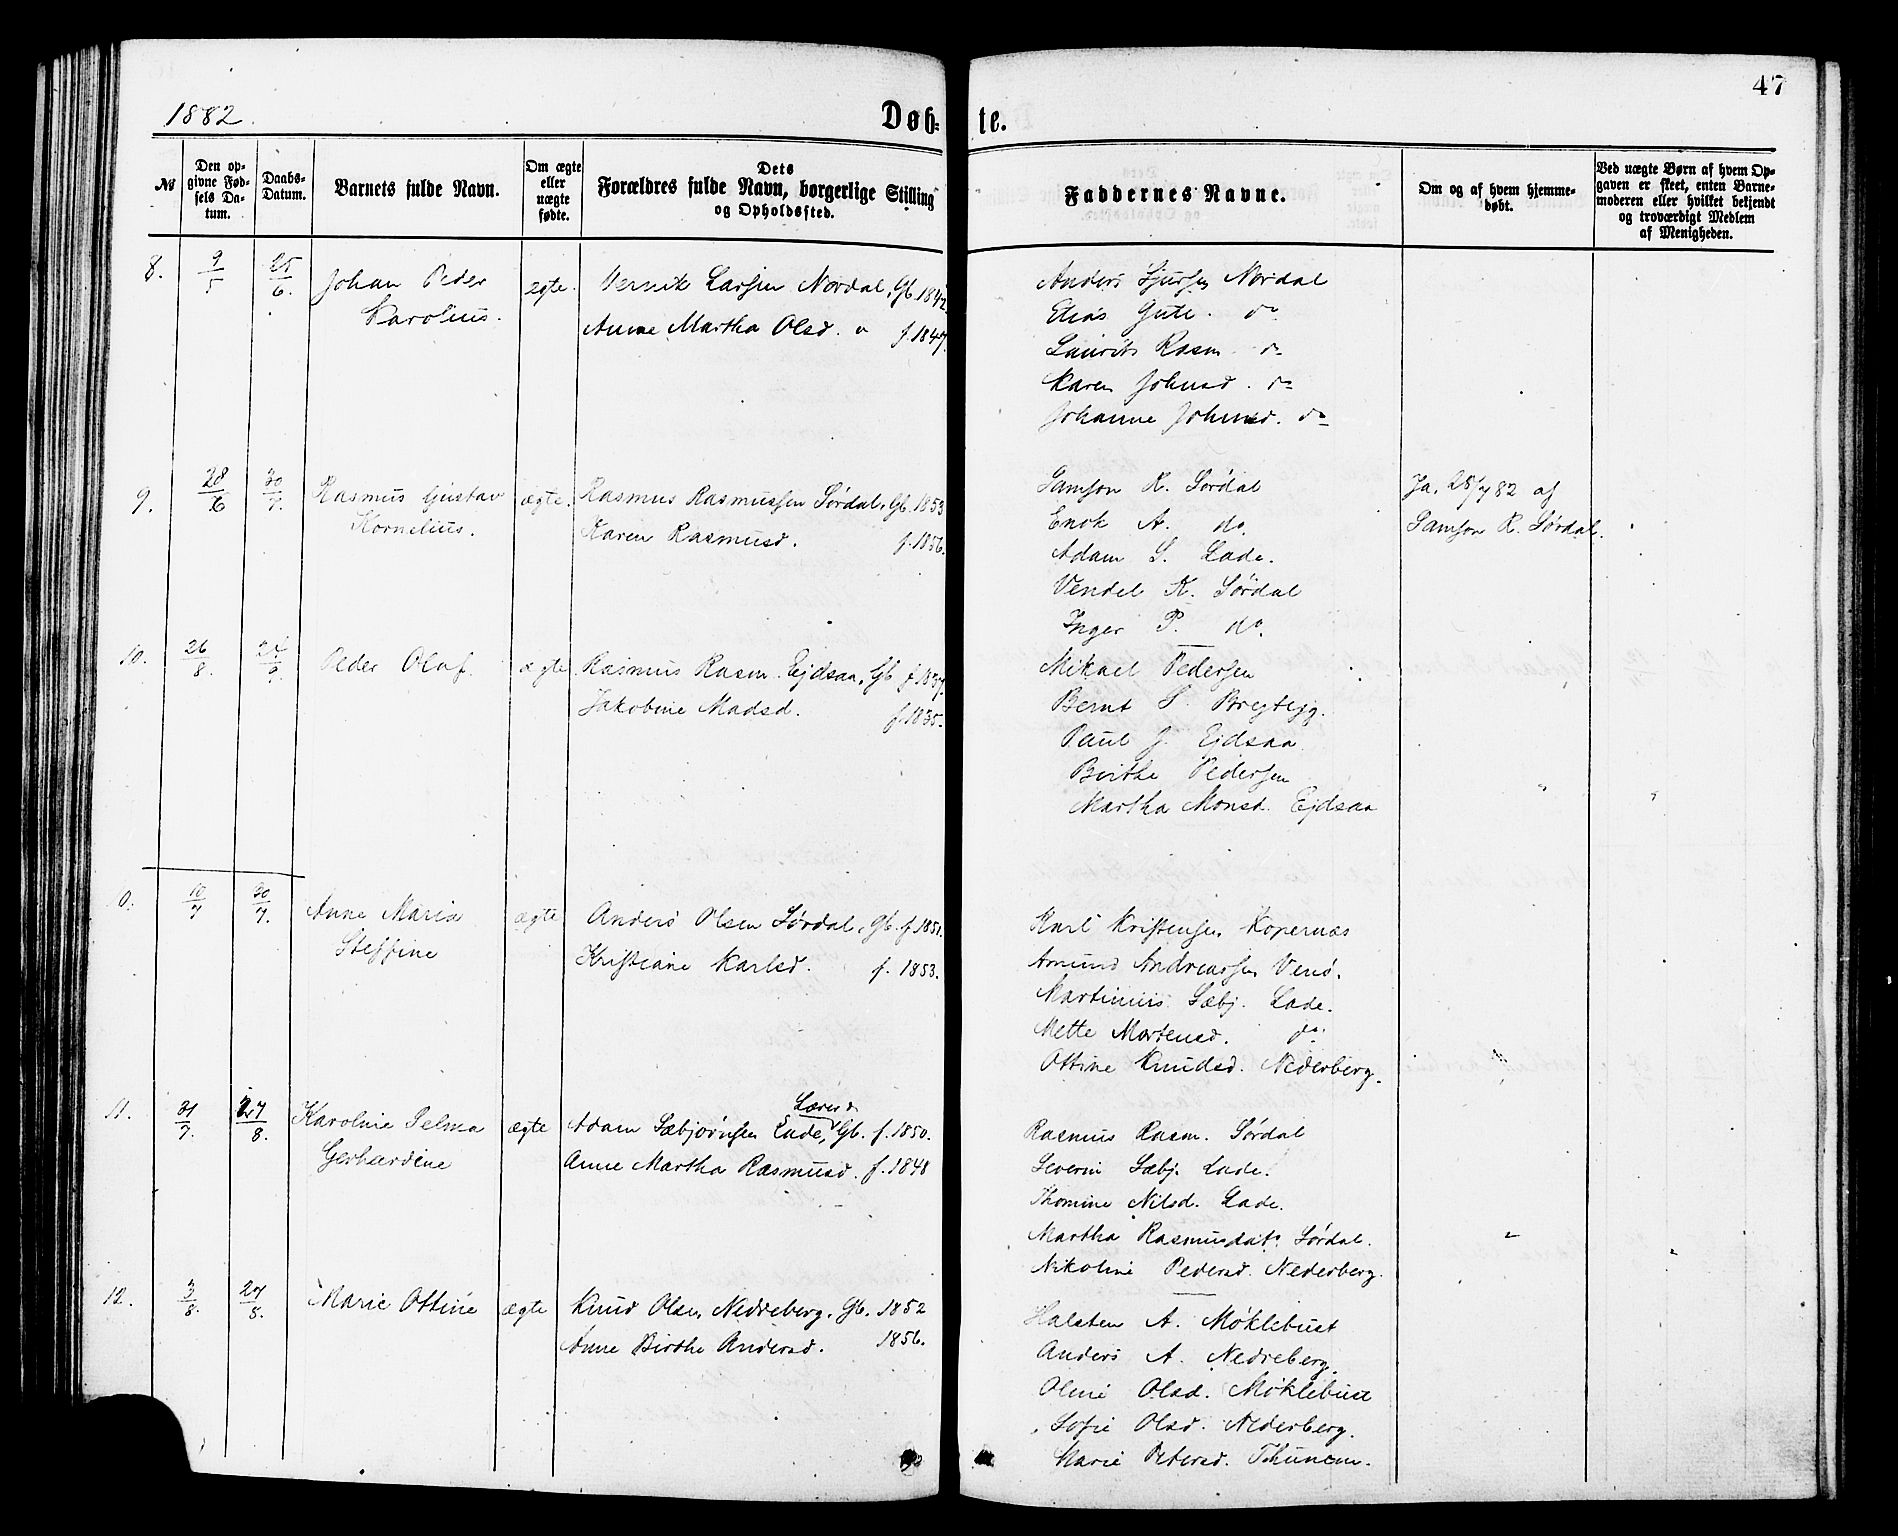 1882.
Døb-
te.
47
№
Den op-
givne Fød-
sels Da-
tum.
Daabs-
Datum.
Barnets fulde Navn.
Om ægte
eller
uægte
fødte.
Dets
Forældres fulde Navn, borgerlige Stilling
og Opholdssted.
Faddernes Navne.
Om og af hvem hjemme-
døbt.
Ved uægte Børn af hvem Op-
gaven er skeet, enten Barne-
moderen eller hvilket bekjendt
og troværdigt Medlem
af Menigheden.
8. 9/5 25/6. Johan Peder
Karolius.
ægte.
Larsen Nordal, Gb. 1842
Anne Martha Olsd. f. 1847.
Anders Sjursen Nordal
Elias Gute. do
Laurits Rasm. do
Karen Johnsd. do
Johanne Johnsd. do
9. 28/6 30/7. Rasmus Gustav
Kornelius.
ægte.
Rasmus Rasmussen Sørdal, Gb. 1853
Karen Rasmusd. f. 1856.
Samson R. Sørdal
Enok A. do.
Adam S. Lade.
Vendel K. Sørdal
Inger P. do.
Ja, 28/7 82 af
Samson R. Sørdal.
10. 26/8. 24/9. Peder Olaf
ægte
Rasmus Rasm. Ejdsaa, Gb f. 1837.
Jakobine Madsd. f. 1835.
Mikael Pedersen
Bernt S.
Paul J. Ejdsaa
Birthe Pedersen
Martha Monsd. Ejdsaa
0. 10/7 30/7. Anne Maria
Steffine
ægte
Anders Olsen Sørdal, Gb. f. 1851.
Kristiane Karlsd. f. 1853.
Karl Kristensen Kopernæs
Amund Andreassen Venø.
Martinius Sæbj. Lade.
Mette Mortensd. do.
Ottine Knudsd. Nederberg.
11. 31/7. 27/8. Karoline Selma
Gerhardine
ægte
Lærer
Adam Sæbjørnsen Lade, Gb. f. 1850.
Anne Martha Rasmusd. f. 1848
Rasmus Rasm. Sørdal
Severin Sæbj. Lade.
Thomine Nilsd. Lade.
Martha Rasmusdat. Sørdal.
Nikoline Pedersd. Nederberg.
12. 3/8. 27/8. Marie Ottine
ægte
Knud Olsen Nedreberg, Gb. 1852
Anne Birthe Andersd. 1856.
Halsten A. Møklebust
Anders A. Nedreberg.
Oline Olsd. Møklebust
Sofie Olsd. Nederberg.
Marie Petersd. Thunem.